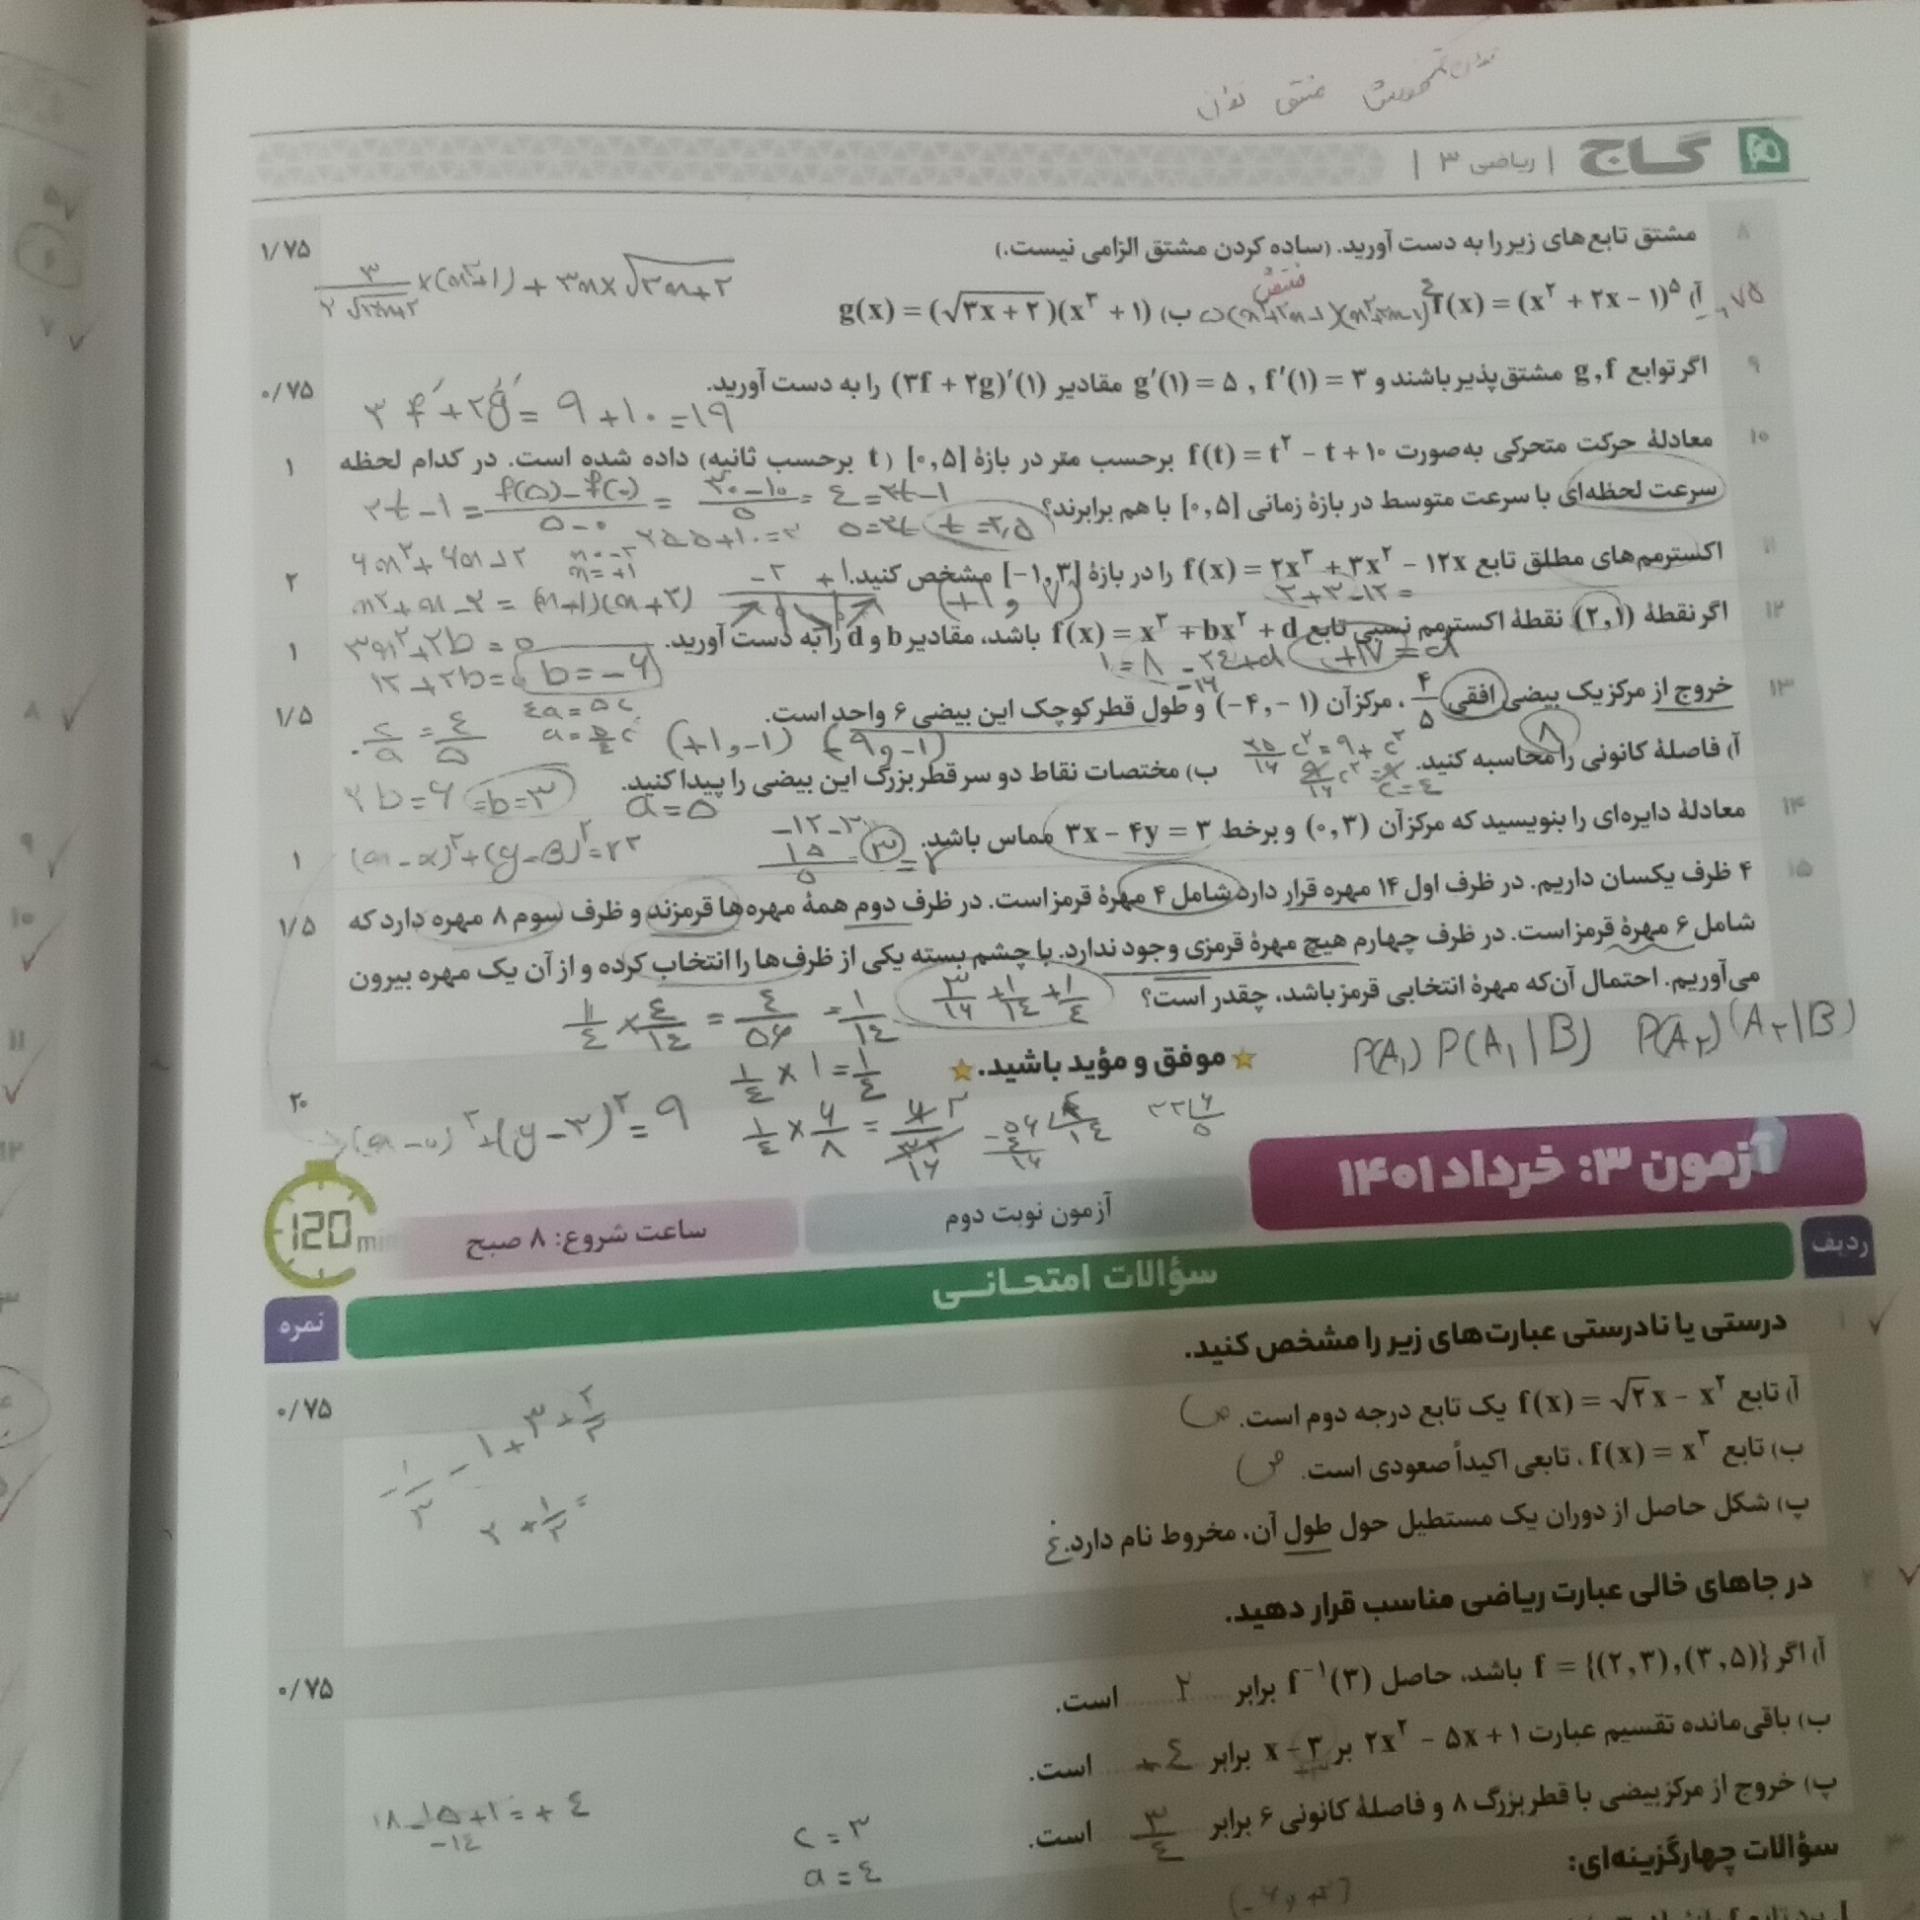 گاج | ریاضی ۳ |
۸ مشتق تابع‌های زیر را به دست آورید. (ساده کردن مشتق الزامی نیست.) ۱/۷۵
آ) f(x) = (x² + ۲x − ۱)⁵ ب) g(x) = (√۳x + ۲)(x³ + ۱)
۹ اگر توابع g,f مشتق‌پذیر باشند و f′(۱) = ۳ , g′(۱) = ۵ مقادیر (۳f + ۲g)′(۱) را به دست آورید. ۰/۷۵
۳f′ + ۲g′ = ۹ + ۱۰ = ۱۹
۱۰ معادلهٔ حرکت متحرکی به‌صورت f(t) = t² − t + ۱۰ برحسب متر در بازهٔ [۰,۵] (t برحسب ثانیه) داده شده است. در کدام لحظه ۱
سرعت لحظه‌ای با سرعت متوسط در بازهٔ زمانی [۰,۵] با هم برابرند؟
۲t − ۱ = f(۵) − f(۰) / ۵ − ۰ = ۳۰ − ۱۰ / ۵ = ۴ = ۲t − ۱
۵ = ۲t t = ۲,۵
۱۱ اکسترمم‌های مطلق تابع f(x) = ۲x³ + ۳x² − ۱۲x را در بازهٔ [−۱,۳] مشخص کنید. ۲
۱۲ اگر نقطهٔ (۲,۱) نقطهٔ اکسترمم نسبی تابع f(x) = x³ + bx² + d باشد، مقادیر b و d را به دست آورید. ۱
۱۲ + ۲b = ۰ b = −۶
۱ = ۸ − ۲۴ + d +۱۷ = d
۱۳ خروج از مرکز یک بیضی افقی ۴/۵، مرکز آن (−۴, −۱) و طول قطر کوچک این بیضی ۶ واحد است. ۱/۵
c/a = ۴/۵ ۴a = ۵c a = ۵/۴ c (+۱, −۱) (−۹, −۱)
آ) فاصلهٔ کانونی را محاسبه کنید. ۸ ب) مختصات نقاط دو سر قطر بزرگ این بیضی را پیدا کنید.
۲b = ۶ = b = ۳ a = ۵
۱۴ معادلهٔ دایره‌ای را بنویسید که مرکز آن (۰,۳) و بر خط ۳x − ۴y = ۳ مماس باشد. ۱
۱۵ ۴ ظرف یکسان داریم. در ظرف اول ۱۴ مهره قرار دارد شامل ۴ مهرهٔ قرمز است. در ظرف دوم همهٔ مهره‌ها قرمزند و ظرف سوم ۸ مهره دارد که ۱/۵
شامل ۶ مهرهٔ قرمز است. در ظرف چهارم هیچ مهرهٔ قرمزی وجود ندارد. با چشم بسته یکی از ظرف‌ها را انتخاب کرده و از آن یک مهره بیرون
می‌آوریم. احتمال آن‌که مهرهٔ انتخابی قرمز باشد، چقدر است؟
۳/۱۶ + ۱/۱۴ + ۱/۴
۱/۴ × ۴/۱۴ = ۴/۵۶ = ۱/۱۴
P(A₁) P(A₁|B) P(A₂)(A₂|B)
موفق و مؤید باشید.
۱/۴ × ۱ = ۱/۴
۲۰
(y − ۳)² = ۹
آزمون ۳: خرداد ۱۴۰۱
آزمون نوبت دوم
ساعت شروع: ۸ صبح
120 min
ردیف
سؤالات امتحانی
نمره
۱ درستی یا نادرستی عبارت‌های زیر را مشخص کنید.
آ) تابع f(x) = √۲x − x² یک تابع درجه دوم است. ص ۰/۷۵
ب) تابع f(x) = x³، تابعی اکیداً صعودی است. ص
پ) شکل حاصل از دوران یک مستطیل حول طول آن، مخروط نام دارد. غ
۲ در جاهای خالی عبارت ریاضی مناسب قرار دهید.
آ) اگر f = {(۲,۳),(۳,۵)} باشد، حاصل f⁻¹(۳) برابر ۲ است. ۰/۷۵
ب) باقی‌مانده تقسیم عبارت ۲x² − ۵x + ۱ بر x − ۳ برابر +۴ است.
۱۸ − ۱۵ + ۱ = +۴
پ) خروج از مرکز بیضی با قطر بزرگ ۸ و فاصلهٔ کانونی ۶ برابر ۳/۴ است.
c = ۳
a = ۴
۳ سؤالات چهارگزینه‌ای: